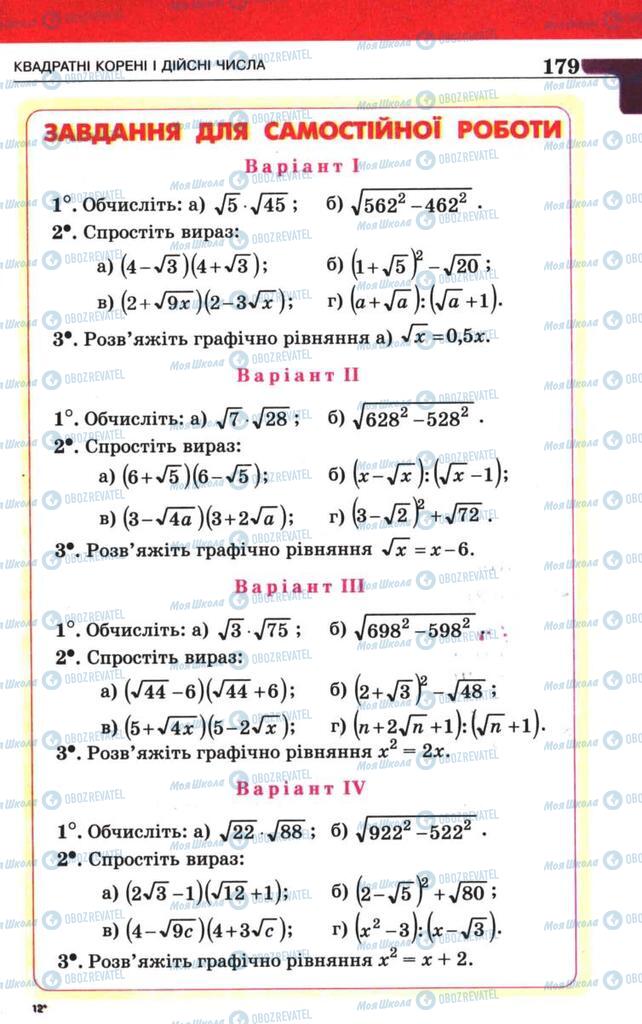 КВАДРАТНІ КОРЕНІ І ДІЙСНІ ЧИСЛА 179
ЗАВДАННЯ ДЛЯ САМОСТІЙНОЇ РОБОТИ
Варіант I
1°. Обчисліть: а) √5 · √45 ; б) √(562² – 462²) .
2•. Спростіть вираз:
а) (4 – √3)(4 + √3); б) (1 + √5)² – √20 ;
в) (2 + √9x)(2 – 3√x); г) (a + √a) : (√a + 1).
3•. Розв'яжіть графічно рівняння а) √x = 0,5x.
Варіант II
1°. Обчисліть: а) √7 · √28 ; б) √(628² – 528²) .
2•. Спростіть вираз:
а) (6 + √5)(6 – √5); б) (x – √x) : (√x – 1);
в) (3 – √4a)(3 + 2√a); г) (3 – √2)² + √72 .
3•. Розв'яжіть графічно рівняння √x = x – 6.
Варіант III
1°. Обчисліть: а) √3 · √75 ; б) √(698² – 598²)
2•. Спростіть вираз:
а) (√44 – 6)(√44 + 6); б) (2 + √3)² – √48 ;
в) (5 + √4x)(5 – 2√x); г) (n + 2√n + 1) : (√n + 1).
3•. Розв'яжіть графічно рівняння x² = 2x.
Варіант IV
1°. Обчисліть: а) √22 · √88 ; б) √(922² – 522²) .
2•. Спростіть вираз:
а) (2√3 – 1)(√12 + 1); б) (2 – √5)² + √80 ;
в) (4 – √9c)(4 + 3√c); г) (x² – 3) : (x – √3).
3•. Розв'яжіть графічно рівняння x² = x + 2.
12*